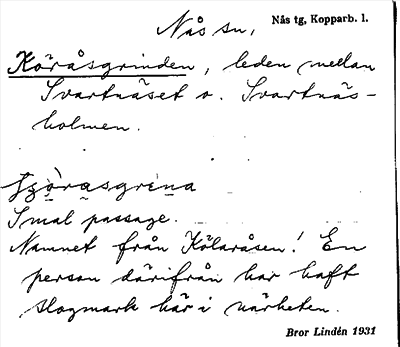 Nås sn,
Nås tg, Kopparb. l.
Köråsgrinden, leden mellan
Svartnäset o. Svartnäs-
holmen.
Smal passage.
Namnet från Kölaråsen! En
person därifrån har haft
slogmark här i närheten.
Bror Lindén 1931